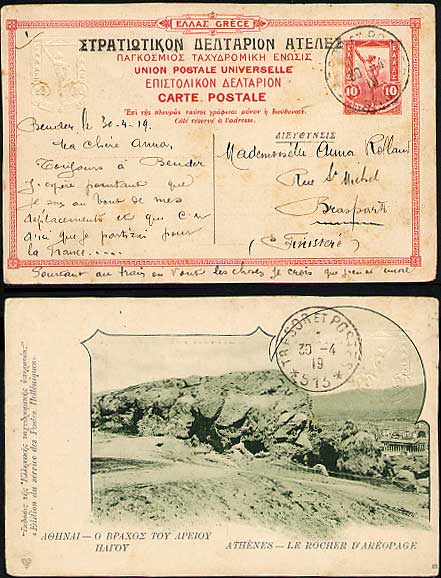 ΕΛΛΑΣ GRÈCE
ΣΤΡΑΤΙΩΤΙΚΟΝ ΔΕΛΤΑΡΙΟΝ ΑΤΕΛΕΣ
ΠΑΓΚΟΣΜΙΟΣ ΤΑΧΥΔΡΟΜΙΚΗ ΕΝΩΣΙΣ
UNION POSTALE UNIVERSELLE
ΕΠΙΣΤΟΛΙΚΟΝ ΔΕΛΤΑΡΙΟΝ
CARTE POSTALE
Ἐπὶ τῆς πλευρᾶς ταύτης γράφεται μόνον ἡ διεύθυνσις.
Côté réservé à l'adresse.
ΕΛΛΑΣ
10 10
ΔΙΕΥΘΥΝΣΙΣ
Bender le 30-4-19.
Ma chère Anna,
Toujours à Bender
J'espère pourtant que
je suis au bout de mes
déplacements et que c'est
ainsi que je partirai pour
la France.....
Mademoiselle Anna Rolland
Rue St Michel
Braspart
(Finistère)
au frais où vont les choses je crois que
TRESOR ET POSTES
30 -4
19
*513*
«Ἔκδοσις τῆς Ἑλληνικῆς ταχυδρομικῆς ὑπηρεσίας»
«Edition du service des Postes Helléniques»
ΑΘΗΝΑΙ—Ο ΒΡΑΧΟΣ ΤΟΥ ΑΡΕΙΟΥ
ΠΑΓΟΥ
ATHÈNES—LE ROCHER D'ARÉOPAGE